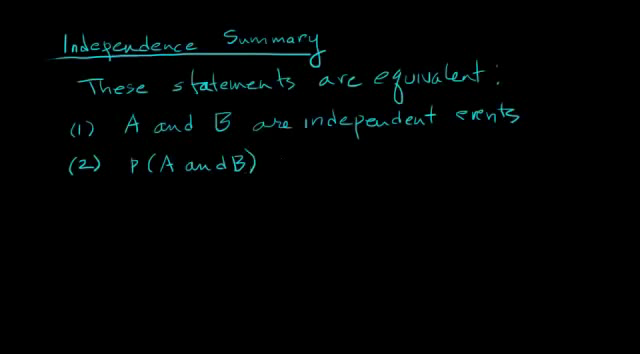 Independence Summary
These statements are equivalent:
(1) A and B are independent events
(2) P(A and B)